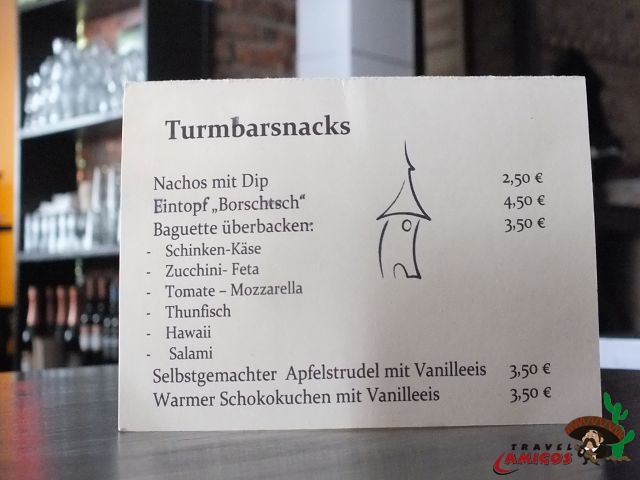 Turmbarsnacks
Nachos mit Dip 2,50 €
Eintopf „Borschtsch“ 4,50 €
Baguette überbacken: 3,50 €
- Schinken-Käse
- Zucchini- Feta
- Tomate – Mozzarella
- Thunfisch
- Hawaii
- Salami
Selbstgemachter Apfelstrudel mit Vanilleeis 3,50 €
Warmer Schokokuchen mit Vanilleeis 3,50 €
TRAVEL
AMIGOS